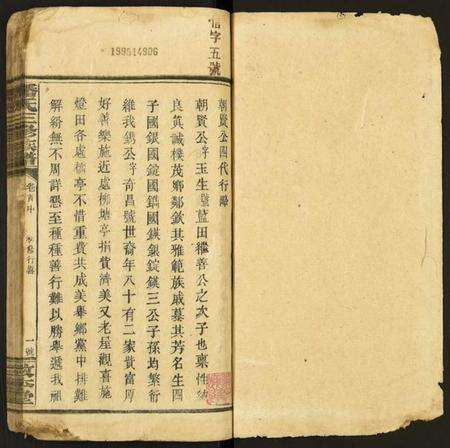 信字五號
199614906
朝賢公四代行
朝賢公字玉生號藍田繼善公之次子也稟性
良真誠樸茂鄉鄰欽其雅範族戚慕其芳名生四
子國銀國錠國鎬國鍈銀錠鍈三公子孫均繁衍
維我鎬公字奇昌號世裔年八十有二家貲富厚
好善樂施近處柳塘亭捐貲濟美又老屋觀喜施
燈田各處橋亭不惜重費共成美舉鄉黨中排難
解紛無不周詳懇至種種善行難以勝舉遞我
潘氏三修族譜
卷首中
行
一號
堂